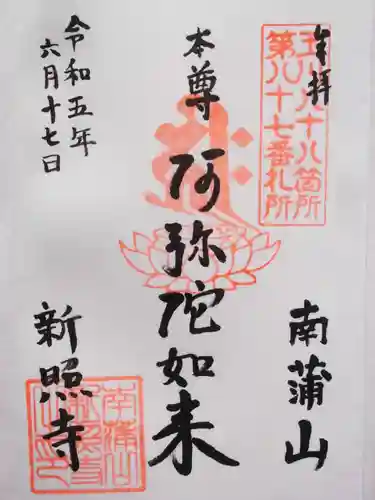 奉拝
玉川八十八箇所
第八十七番札所
南蒲山
本尊
阿弥陀如来
令和五年
六月十七日
新照寺
南蒲山
新照寺